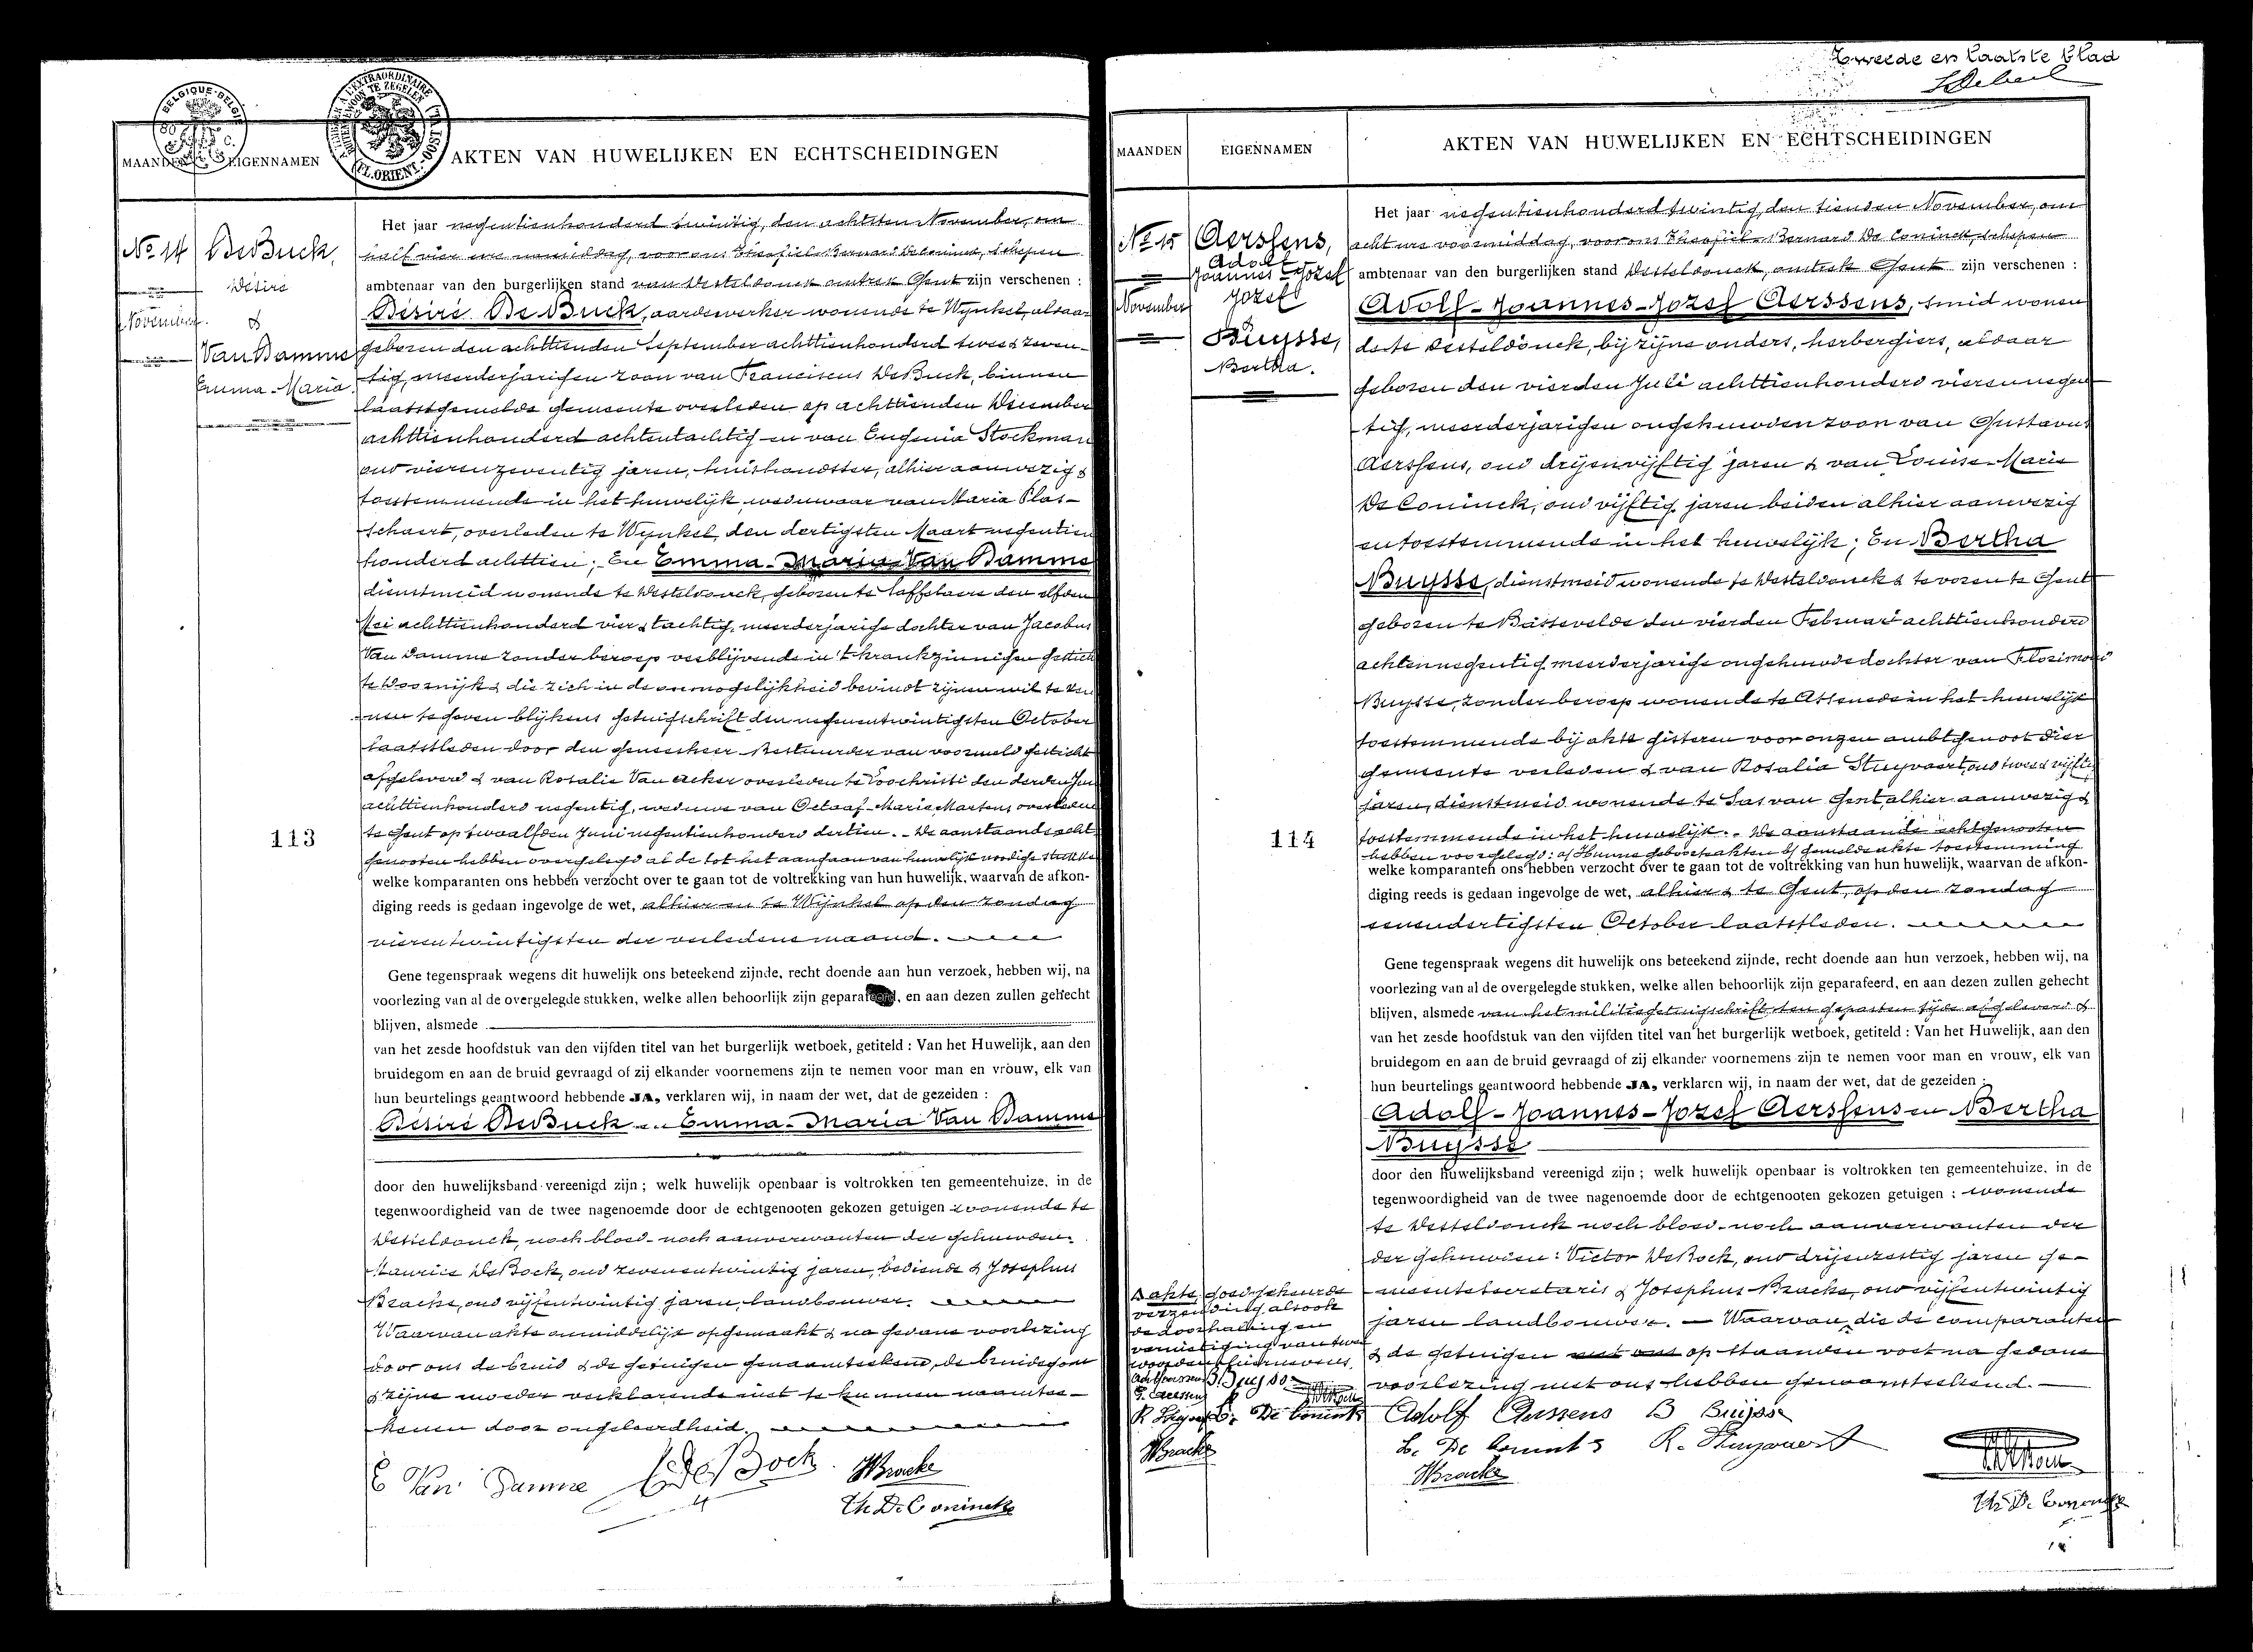 Tweede en laatste blad
BELGIQUE-BELGIË
(FL.ORIENT.-OOST.VL.)
MAANDEN
EIGENNAMEN
AKTEN VAN HUWELIJKEN EN ECHTSCHEIDINGEN
No 14
November
DeBuck,
Désiré
&
VanDamme
Emma-Maria.
113
Het jaar negentienhonderd twintig, den achtsten November, om
half vier ure namiddag, voor ons Theofiel Bernard De Coninck, schepen
ambtenaar van den burgerlijken stand van Desteldonck omtrek Gent zijn verschenen :
Désiré De Buck, aardewerker wonende te Wynkel, aldaar
geboren den achttienden September achttienhonderd twee & zeven-
tig, meerderjarigen zoon van Franciscus DeBuck, binnen
laatstgemelde gemeente overleden op achttienden December
achttienhonderd achtentachtig en van Eugenia Stockman
oud vierenzeventig jaren, huishoudster, alhier aanwezig &
toestemmende in het huwelijk, weduwaar van Maria Plas-
schaert, overleden te Wynkel, den dertigsten Maart negentien
honderd achttien; En Emma-Maria Van Damme
dienstmeid wonende te Desteldonck, geboren te Laffelaere den elfden
Mei achttienhonderd vier & tachtig, meerderjarige dochter van Jacobus
Van Damme zonder beroep verblijvende in 't krankzinnigen gesticht
te Doornijk & die zich in de onmogelijkheid bevindt zijnen wil te ken
nen te geven blijkens getuigschrift den negenentwintigsten October
laatstleden door den geneesheer Bestuurder van voormeld gesticht
afgeleverd & van Rosalie Van Acker overleden te Loochristi den derden Juni
achttienhonderd negentig, weduwe van Octaaf-Marie Martens overleden
te Gent op twaalfden Juni negentienhonderd dertien. - De aanstaande echt-
genooten hebben overgelegd al de tot het aangaan van huwelijk noodige stukken
welke komparanten ons hebben verzocht over te gaan tot de voltrekking van hun huwelijk, waarvan de afkon-
diging reeds is gedaan ingevolge de wet, alhier en te Wijnkel op den zondag
vierentwintigsten der verledene maand.
Gene tegenspraak wegens dit huwelijk ons beteekend zijnde, recht doende aan hun verzoek, hebben wij, na
voorlezing van al de overgelegde stukken, welke allen behoorlijk zijn geparafeerd, en aan dezen zullen gehecht
blijven, alsmede
van het zesde hoofdstuk van den vijfden titel van het burgerlijk wetboek, getiteld : Van het Huwelijk, aan den
bruidegom en aan de bruid gevraagd of zij elkander voornemens zijn te nemen voor man en vrouw, elk van
hun beurtelings geantwoord hebbende JA, verklaren wij, in naam der wet, dat de gezeiden :
Désiré DeBuck en Emma-Maria Van Damme
door den huwelijksband vereenigd zijn ; welk huwelijk openbaar is voltrokken ten gemeentehuize, in de
tegenwoordigheid van de twee nagenoemde door de echtgenooten gekozen getuigen wonende te
Desteldonck, noch bloed- noch aanverwanten der gehuwden:
Maurice DeBock, oud zevenentwintig jaren, bediende & Josephus
Bracke, oud vijfentwintig jaren, landbouwer.
Waarvan akte onmiddelijk opgemaakt & na gedane voorlezing
door ons de bruid & de getuigen genaamteekend, de bruidegom
& zijne moeder verklarende niet te kunnen naamtee-
kenen door ongeleerdheid.
E Van Damme DeBock JBracke
Th De Coninck
MAANDEN
EIGENNAMEN
AKTEN VAN HUWELIJKEN EN ECHTSCHEIDINGEN
No 15
November
Aerssens,
Adolf
Joannes-Jozef
Jozef
Buysse,
Bertha.
114
Het jaar negentienhonderd twintig, den tienden November, om
acht ure voormiddag, voor ons Theofiel-Bernard De Coninck, schepen
ambtenaar van den burgerlijken stand Desteldonck, omtrek Gent zijn verschenen :
Adolf-Joannes-Jozef Aerssens, smid wonen
de te Desteldonck, bij zijne ouders, herbergiers, aldaar
geboren den vierden Juli achttienhonderd vierennegen
tig, meerderjarigen ongehuwden zoon van Gustavus
Aerssens, oud drijenvijftig jaren & van Louise-Marie
De Coninck, oud vijftig jaren beiden alhier aanwezig
en toestemmende in het huwelijk; En Bertha
Buysse, dienstmeid wonende te Desteldonck & te voren te Gent
geboren te Bassevelde den vierden Februari achttienhonderd
achtennegentig meerderjarige ongehuwde dochter van Florimond
Buysse, zonder beroep wonende te Assenede in het huwelijk
toestemmende bij akte gisteren voor onzen ambtgenoot dier
gemeente verleden & van Rosalia Stuyvaert, oud twee & vijftig
jaren, dienstmeid wonende te Sas van Gent, alhier aanwezig &
toestemmende in het huwelijk. - De aanstaande echtgenooten
hebben voorgelegd: a/ Hunne geboorteakten b/ gemelde akte toestemming
welke komparanten ons hebben verzocht over te gaan tot de voltrekking van hun huwelijk, waarvan de afkon-
diging reeds is gedaan ingevolge de wet, alhier & te Gent, op den zondag
eenendertigsten October laatstleden.
Gene tegenspraak wegens dit huwelijk ons beteekend zijnde, recht doende aan hun verzoek, hebben wij, na
voorlezing van al de overgelegde stukken, welke allen behoorlijk zijn geparafeerd, en aan dezen zullen gehecht
blijven, alsmede van het militiegetuigschrift ten gepasten tijde afgeleverd &
van het zesde hoofdstuk van den vijfden titel van het burgerlijk wetboek, getiteld : Van het Huwelijk, aan den
bruidegom en aan de bruid gevraagd of zij elkander voornemens zijn te nemen voor man en vrouw, elk van
hun beurtelings geantwoord hebbende JA, verklaren wij, in naam der wet, dat de gezeiden :
Adolf-Joannes-Jozef Aerssens en Bertha
Buysse
door den huwelijksband vereenigd zijn ; welk huwelijk openbaar is voltrokken ten gemeentehuize, in de
tegenwoordigheid van de twee nagenoemde door de echtgenooten gekozen getuigen : wonende
te Desteldonck noch bloed- noch aanverwanten der
der gehuwden: Victor DeBock, oud drijenzestig jaren ge-
meentesecretaris & Josephus Bracke, oud vijfentwintig
jaren landbouwer. - Waarvan, die de comparanten
& de getuigen met ons op staanden voet na gedane
voorlezing met ons hebben genaamteekend. -
akte goedgekeurde
verzending alsook
de doorhaling en
vernietiging van twee
woorden hiernevens.
B. Buysse
De Coninck
JBracke
Adolf Aerssens B Buijsse
L. De Coninck R. Stuyvaert
JBracke
Th De Coninck